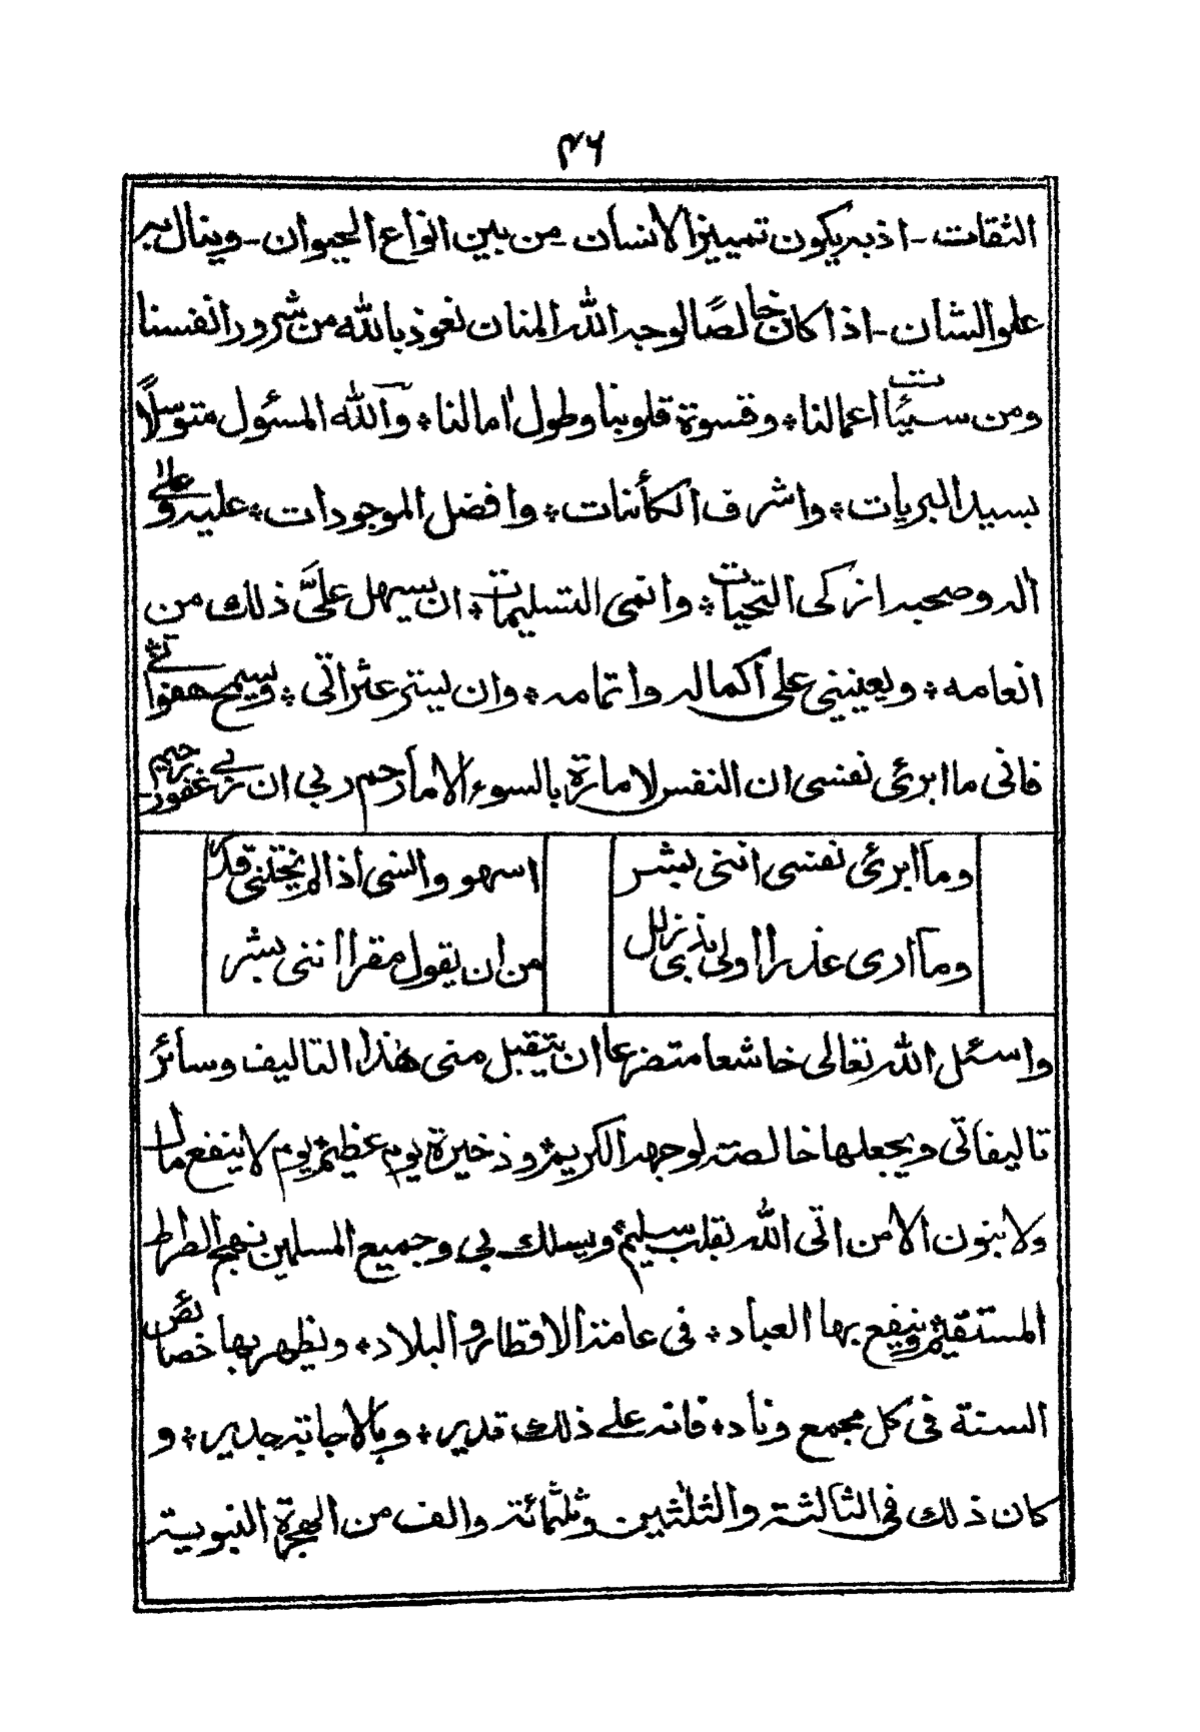 ۴۶
الثقات ۔ اذ بہ یکون تمییز الانسان ۔ من بین انواع الحیوان ۔ وینال بہ
علو الشان ۔ اذا کان خالصًا لوجہ اللہ المنان نعوذ باللہ من شرور انفسنا
ومن سیئات اعمالنا ٭ وقسوة قلوبنا وطول اٰمالنا ٭ واللہ المسئول متوسلًا
بسید البریات ٭ واشرف الکائنات ٭ وافضل الموجودات ٭ علیہ وعلیٰ
اٰلہ وصحبہ ازکی التحیات ٭ وانمی التسلیمات ٭ ان یسہل علیَّ ذلک من
انعامہ ٭ ویعیننی علی اکمالہ واتمامہ ٭ وان یستر عثراتی ٭ ویسمح ھفواتی
فانی ما ابرئ نفسی ان النفس لامارة بالسوء الا ما رحم ربی ان ربی غفور رحیم
وما ابرئ نفسی اننی بشر
اسھو وانسی اذا لم یحتفنی قدر
وما اری عذرا اولی بذی زلل
من ان یقول مقرا اننی بشر
واسئل اللہ تعالی خاشعا متضرعا ان یتقبل منی ھٰذا التالیف وسائر
تالیفاتی ویجعلھا خالصتہ لوجھہ الکریم ٭ وذخیرة یوم عظیم ٭ یوم لا ینفع مال
ولا بنون الا من اتی اللہ بقلب سلیم ٭ ویسلک بی وجمیع المسلمین نھج الطراط
المستقیم ٭ وینفع بھا العباد ٭ فی عامتہ الاقطار والبلاد ٭ ویظھر بھا خصائص
السنة فی کل مجمع وناد ٭ فانہ علے ذلک قدیر ٭ وبالاجابتہ جدیر ٭ و
کان ذلک فی الثالثتہ والثلٰثین وثلٰثمائتہ والف من الھجرة النبویتہ